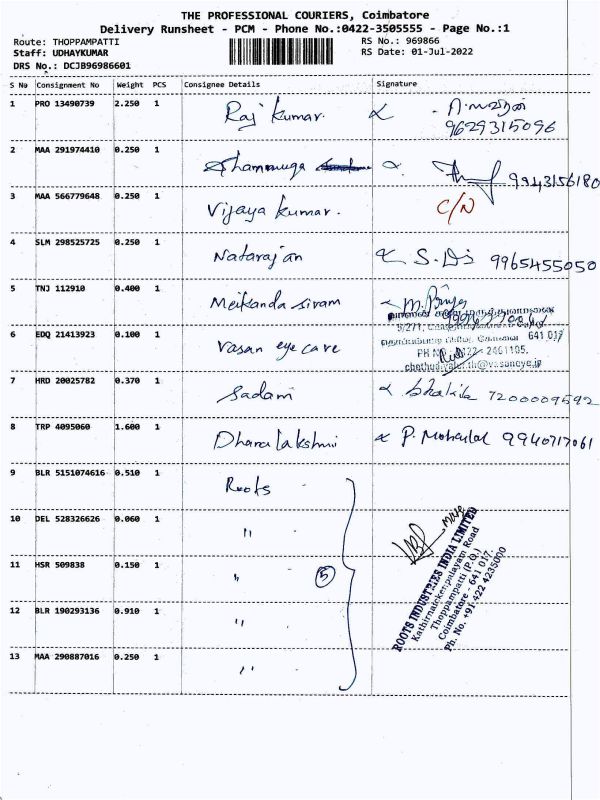 THE PROFESSIONAL COURIERS, Coimbatore
Delivery Runsheet - PCM - Phone No.:0422-3505555 - Page No.:1
Route: THOPPAMPATTI
RS No.: 969866
Staff: UDHAYKUMAR
RS Date: 01-Jul-2022
DRS No.: DCJB96986601
S No Consignment No Weight PCS Consignee Details Signature
1 PRO 13490739 2.250 1 Raj kumar.
9629315096
2 MAA 291974410 0.250 1 9943156180
3 MAA 566779648 0.250 1 Vijaya kumar. C/N
4 SLM 298525725 0.250 1 Natarajan 9965455050
5 TNJ 112910 0.400 1 Meikanda sivam
6 EDQ 21413923 0.100 1 Vasan eye care
5/271,
641 017
7 HRD 20025782 0.370 1 Sadam 7200009592
8 TRP 4095060 1.600 1 Dhanalakshmi 9940717061
9 BLR 5151074616 0.510 1 Roots
10 DEL 528326626 0.060 1 "
11 HSR 509838 0.150 1 " 5
12 BLR 190293136 0.910 1 "
13 MAA 290887016 0.250 1 "
ROOTS INDUSTRIES INDIA LIMITED
Kathirnaickenpalayam Road
Thoppampatti (P.O.)
Coimbatore - 641 017.
Ph. No. +91-422 4235000